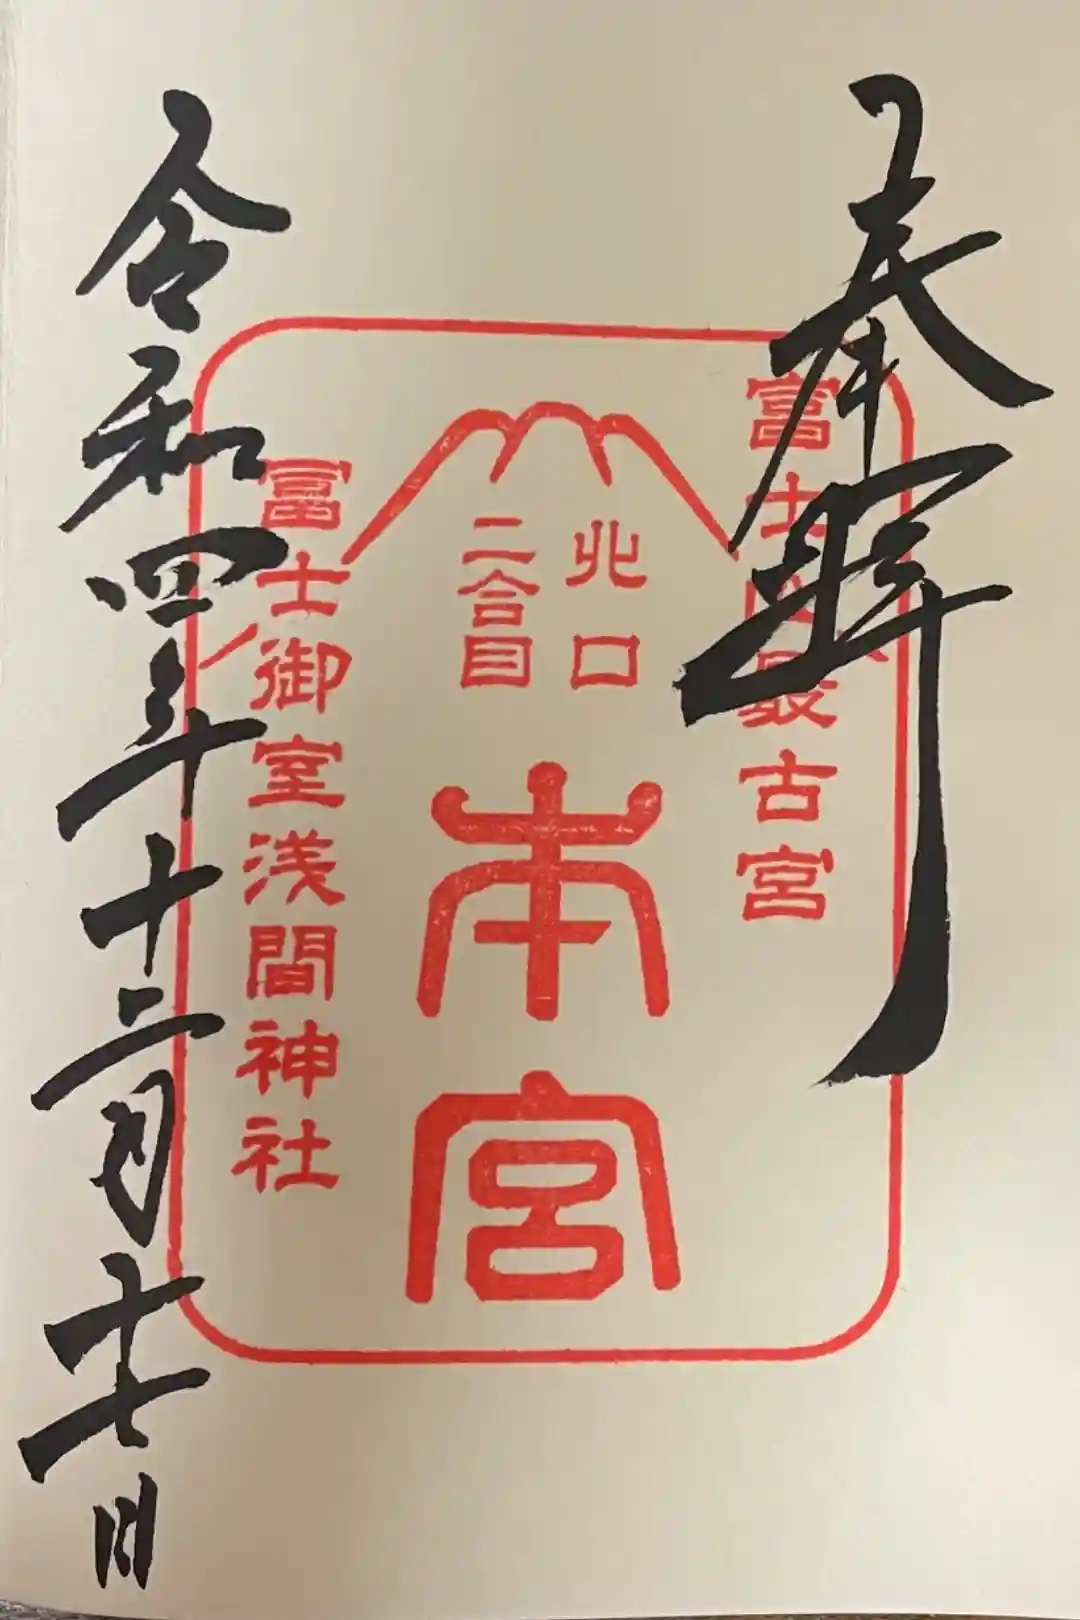 奉拝
富士山最古宮
北口
二合目
本宮
冨士御室浅間神社
令和四年十二月十七日